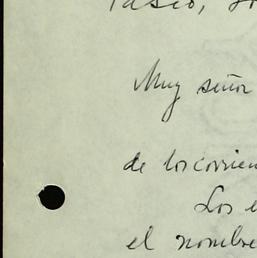 Muy señor
de los corrien
Los e
el nombre